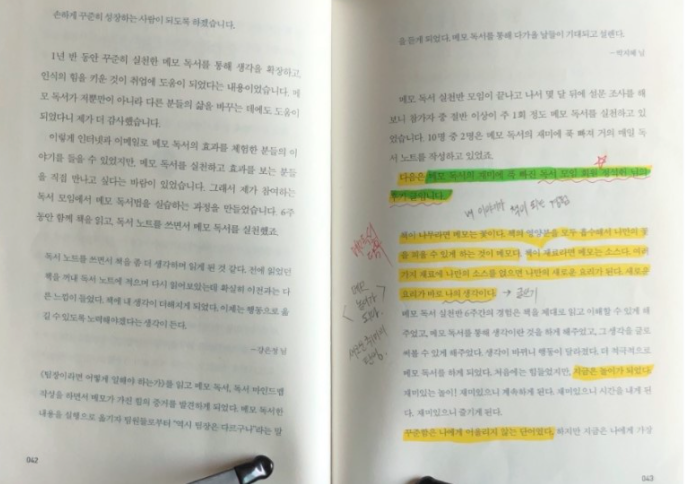 손하게 꾸준히 성장하는 사람이 되도록 하겠습니다.
1년 반 동안 꾸준히 실천한 메모 독서를 통해 생각을 확장하고,
인식의 힘을 키운 것이 취업에 도움이 되었다는 내용이었습니다. 메
모 독서가 저뿐만이 아니라 다른 분들의 삶을 바꾸는 데에도 도움이
되었다니 제가 더 감사했습니다.
이렇게 인터넷과 이메일로 메모 독서의 효과를 체험한 분들의 이
야기를 들을 수 있었지만, 메모 독서를 실천하고 효과를 보는 분들
을 직접 만나고 싶다는 바람이 있었습니다. 그래서 제가 참여하는
독서 모임에서 메모 독서법을 실습하는 과정을 만들었습니다. 6주
동안 함께 책을 읽고, 독서 노트를 쓰면서 메모 독서를 실천했죠.
독서 노트를 쓰면서 책을 좀 더 생각하며 읽게 된 것 같다. 전에 읽었던
책을 꺼내 독서 노트에 적으며 다시 읽어보았는데 확실히 이전과는 다
른 느낌이 들었다. 책에 내 생각이 더해지게 되었다. 이제는 행동으로 옮
길 수 있도록 노력해야겠다는 생각이 든다.
–강은정 님
《팀장이라면 어떻게 일해야 하는가》를 읽고 메모 독서, 독서 마인드맵
작성을 하면서 메모가 가진 힘의 증거를 발견하게 되었다. 메모 독서한
내용을 실행으로 옮기자 팀원들로부터 “역시 팀장은 다르구나”라는 말
042
을 듣게 되었다. 메모 독서를 통해 다가올 날들이 기대되고 설렌다.
메모 독서 실천반 모임이 끝나고 나서 몇 달 뒤에 설문 조사를 해
보니 참가자 중 절반 이상이 주 1회 정도 메모 독서를 실천하고 있
었습니다. 10명 중 2명은 메모 독서의 재미에 푹 빠져 거의 매일 독
서 노트를 작성하고 있었죠.
다음은 메모 독서의 재미에 푹 빠진 독서 모임 회원
책이 나무라면 메모는 꽃이다. 책의 영양분을 모두 흡수해서 나만의 꽃
을 피울 수 있게 하는 것이 메모다. 책이 재료라면 메모는 소스다. 여러
가지 재료에 나만의 소스를 얹으면 나만의 새로운 요리가 된다. 새로운
요리가 바로 나의 생각이다. → 글쓰기
메모 독서 실천반 6주간의 경험은 책을 제대로 읽고 이해할 수 있게 해
주었고, 메모 독서를 통해 생각이란 것을 하게 해주었고, 그 생각을 글로
써볼 수 있게 해주었다. 생각이 바뀌니 행동이 달라졌다. 더 적극적으로
메모 독서를 하게 되었다. 처음에는 힘들었지만, 지금은 놀이가 되었다.
재미있는 놀이! 재미있으니 계속하게 된다. 재미있으니 시간을 내게 된
다. 재미있으니 즐기게 된다.
꾸준함은 나에게 어울리지 않는 단어였다. 하지만 지금은 나에게 가장
043